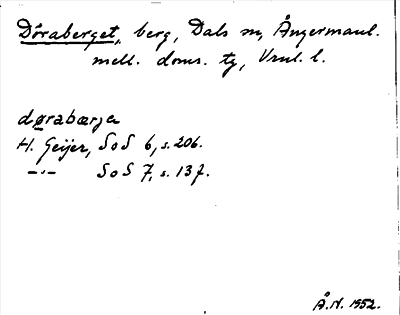 Döraberget, berg, Dals sn, Ångermanl.
mell. doms. tg, Vrnl. l.
dørabærja
H. Geijer, SoS 6, s. 206.
-"- SoS 7, s. 137.
Å.N. 1952.